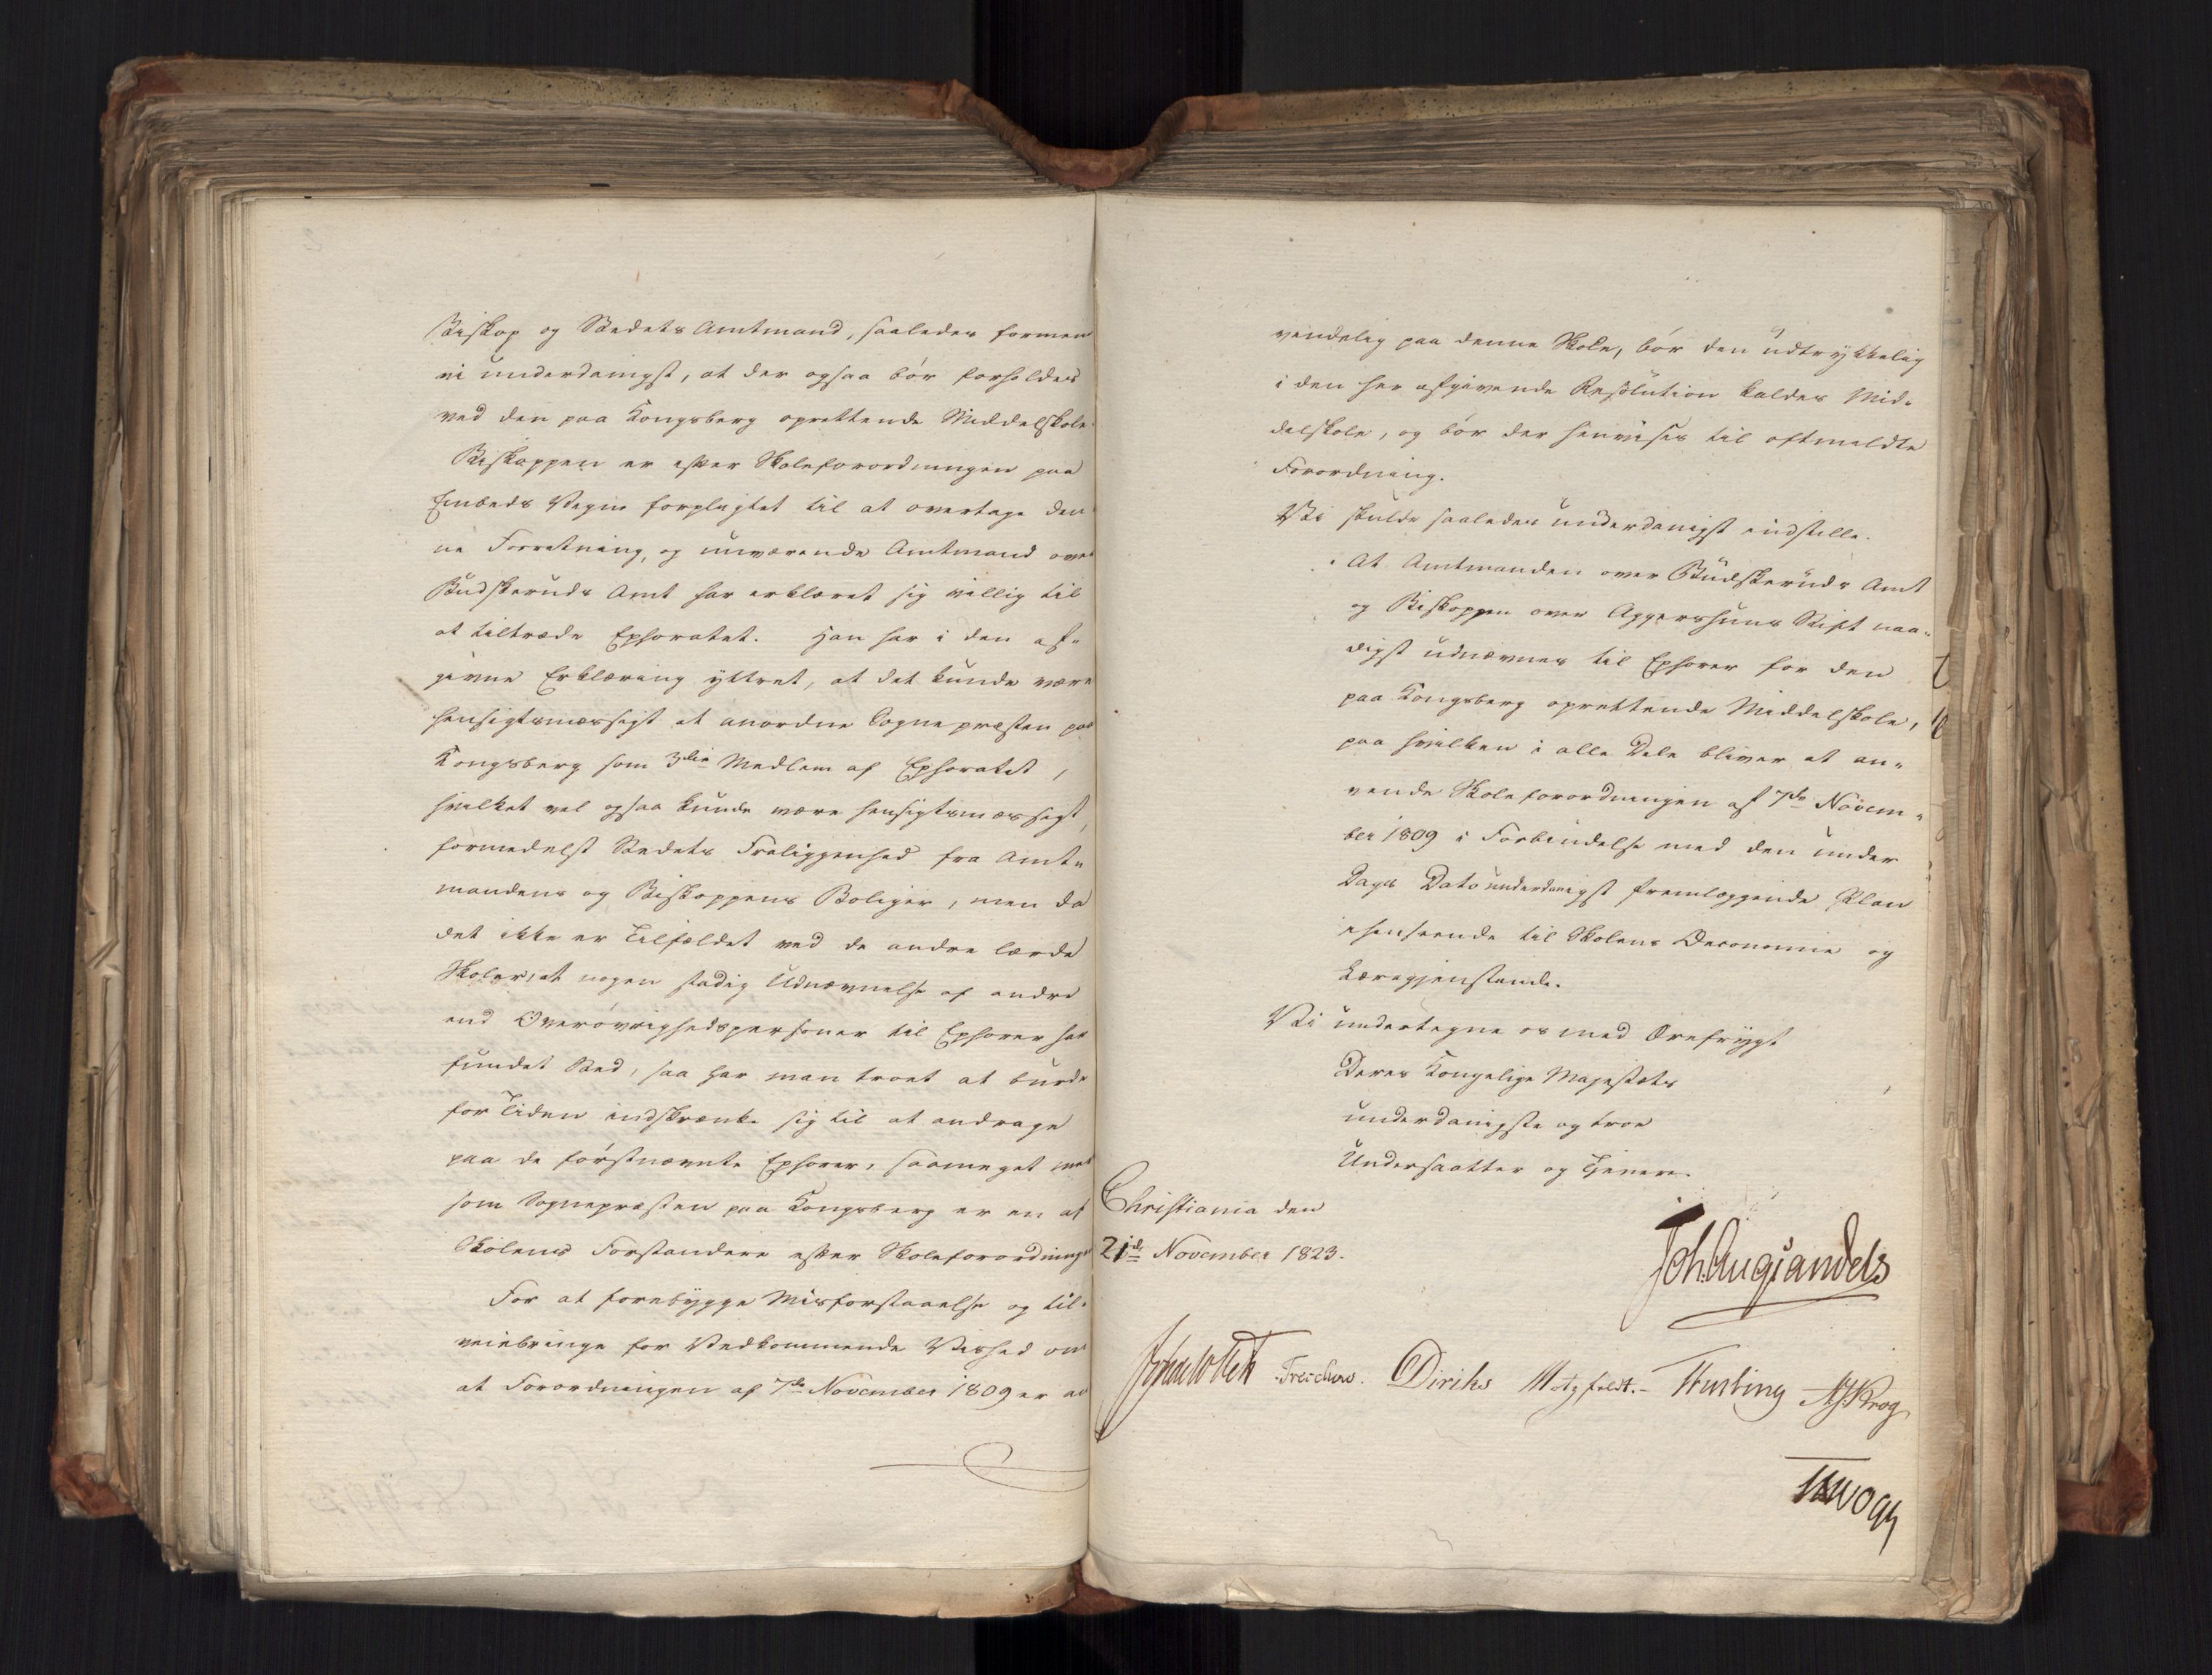 Biskop og Stedets Amtmand, saaledes formene
vi underdanigst, at der ogsaa bör forholdes
ved den paa Kongsberg oprettende Middelskole.
Biskoppen er efter Skoleforordningen paa
Embeds Vegne forpligtet til at overtage den¬
ne Forretning, og nuværende Amtmand over
Budskeruds Amt har erklæret sig villig til
at tiltræde Ephoratet. Han har i den af¬
givne Erklæring yttret, at det kunde være
hensigtsmæssigt at anordne Sognepræsten paa
Kongsberg som 3die Medlem af Ephoratet,
hvilket vel ogsaa kunde være hensigtsmæssigt,
formedelst Stedets Fraliggenhed fra Amt¬
mandens og Biskoppens Boliger, men da
det ikke er Tilfældet ved de andre lærde
Skoler, at nogen stadig Udnævnelse af andre
end Overövrighedspersoner til Ephorer har
fundet Sted, saa har man troet at burde
for Tiden indskrænke sig til at andrage
paa de förstnævnte Ephorer, saameget mere
som Sognepræsten paa Kongsberg er en af
Skolens Forstandere efter Skoleforordningen
For at forebygge Misforstaaelse og til¬
veiebringe for Vedkommende Vished om
at Forordningen af 7de November 1809 er an
vendelig paa denne Skole, bör den udtrykkelig
i den her afgivende Resolution kaldes Mid¬
delskole, og bör der henvises til oftmeldte
Forordning.
Vi skulde saaledes underdanigst indstille:
At Amtmanden over Budskeruds Amt
og Biskoppen over Aggershuus Stift naa¬
digst udnævnes til Ephorer for den
paa Kongsberg oprettende Middelskole,
paa hvilken i alle Dele bliver at an¬
vende Skoleforordningen af 7de Novem¬
ber 1809 i Forbindelse med den under
Dags Dato underdanigst fremlæggende Plan
ihenseende til Skolens Oeconomie og
Læregjenstande.
Vi undertegne os med Ærefrygt
Deres Kongelige Majestæts
underdanigste og troe
Undersaatter og Tjenere.
Christiania den
21de November 1823.
Joh. Aug: Sandels
Jonas Collett Treschow. Diriks Motzfeldt.- Hers